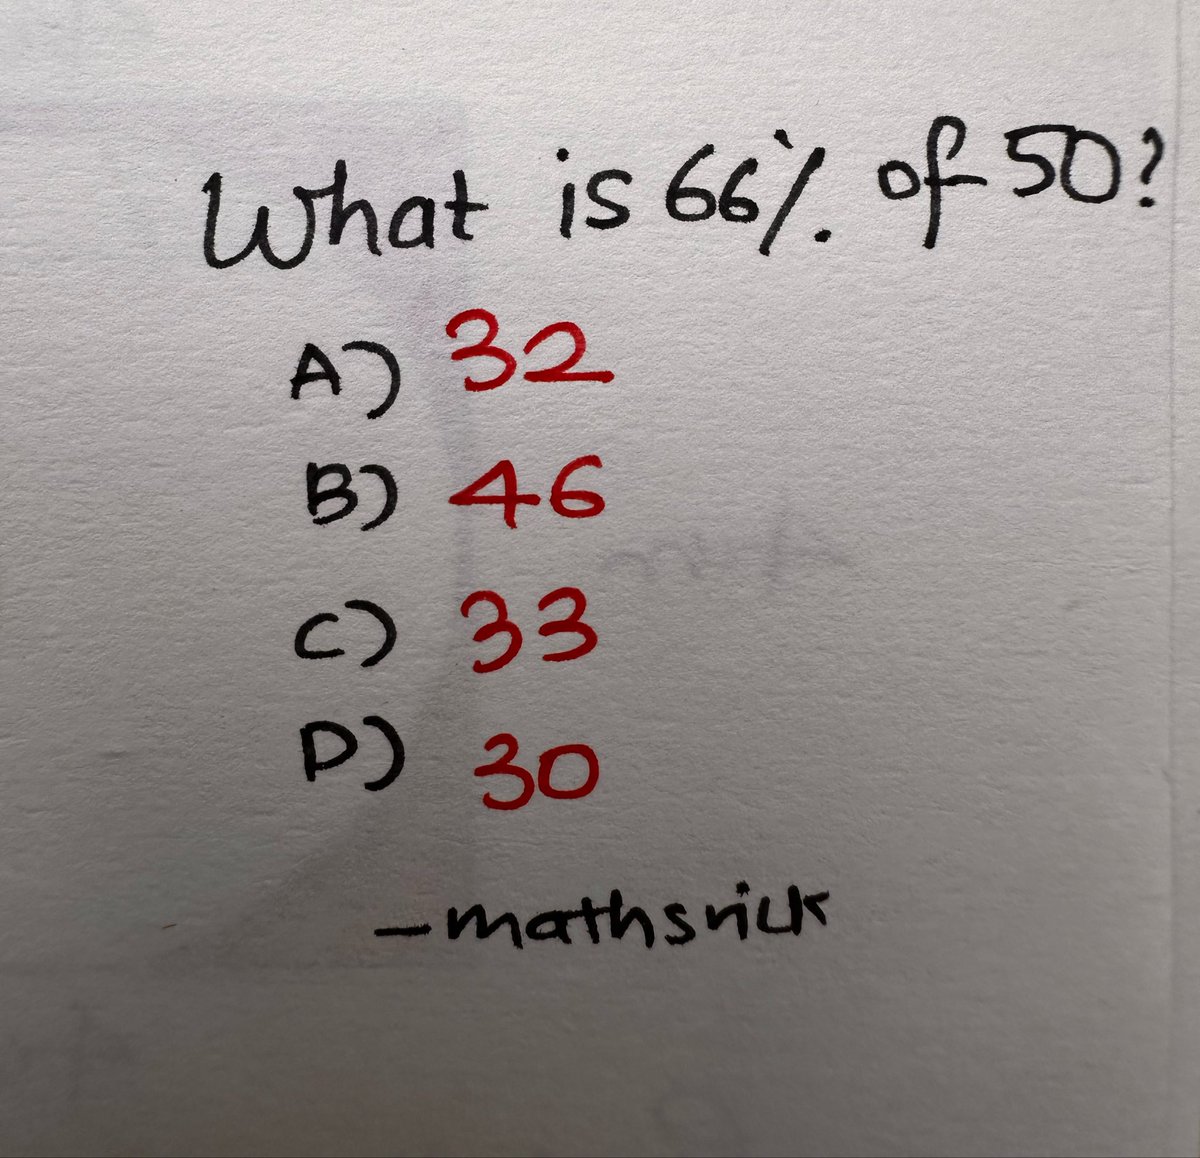 What is 66% of 50?
A) 32
B) 46
C) 33
D) 30
- mathsrick